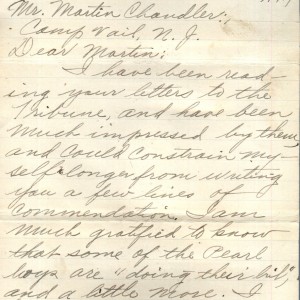 Mr. Martin Chandler;,
Camp Vail, N. J.
Dear Martin;
I have been read-
ing your letters to the
Tribune, and have been
much impressed by them,
and could constrain my-
self longer from writing
you a few lines of
commendation. I am
much gratfied to know
that some of the Pearl
boys are "doing their bit",
and a little more. I